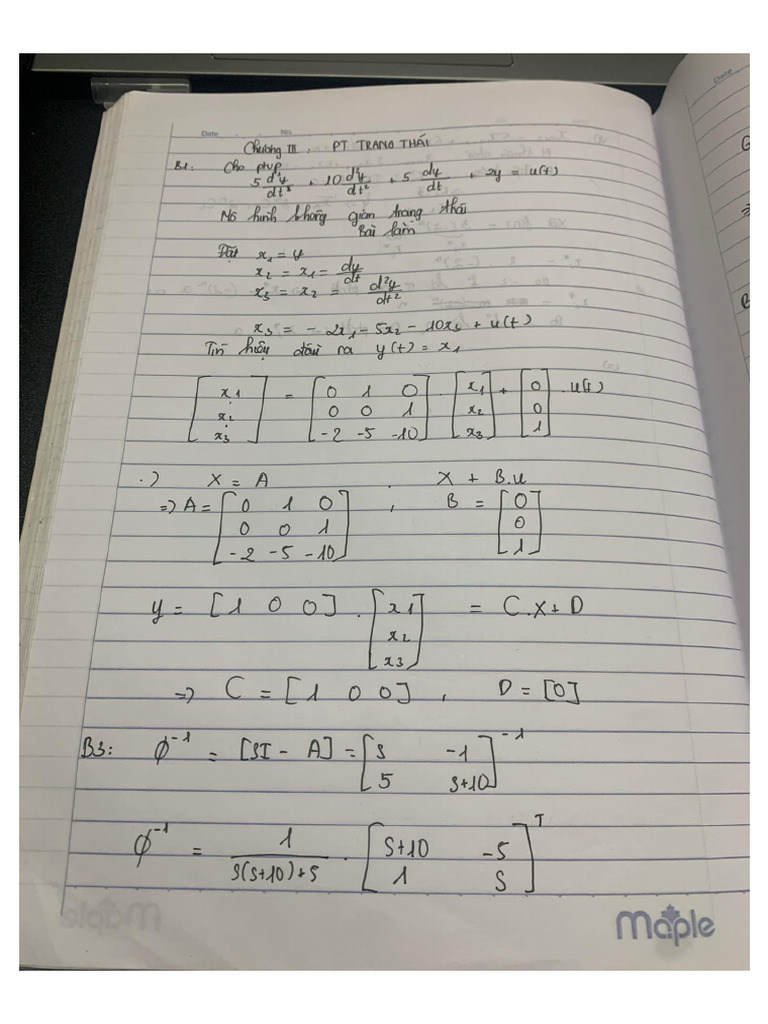 Date No.
Chương III. PT TRẠNG THÁI
B1: Cho ptvp
5 d³y/dt³ + 10 d²y/dt² + 5 dy/dt + 2y = u(t)
Mô hình không gian trạng thái
Bài làm
Đặt x₁ = y
x₂ = x₁ = dy/dt
x₃ = x₂ = d²y/dt²
x₃ = - 2x₁ - 5x₂ - 10x₃ + u(t)
Tín hiệu đầu ra y(t) = x₁
[x1; ẋ2; ẋ3] = [0 1 0; 0 0 1; -2 -5 -10] . [x1; x2; x3] + [0; 0; 1] . u(t)
.) X = A . X + B.u
=> A = [0 1 0; 0 0 1; -2 -5 -10] , B = [0; 0; 1]
y = [1 0 0] . [x1; x2; x3] = C.X + D
=> C = [1 0 0] , D = [0]
B3: ϕ⁻¹ = [SI - A] = [S -1; 5 S+10]⁻¹
ϕ⁻¹ = 1/(S(S+10)+5) . [S+10 -5; 1 S]ᵀ
Maple
Date